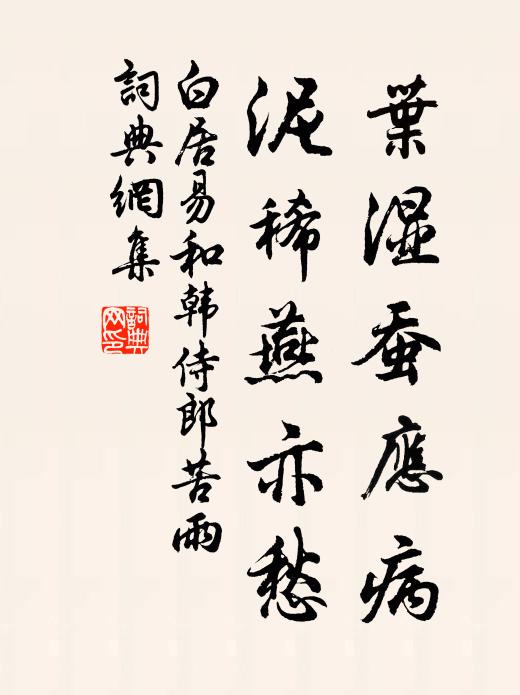 葉濕蚕應病
泥稀燕亦愁
白居易和韩侍郎苦雨
詞典網集
詞典
网印